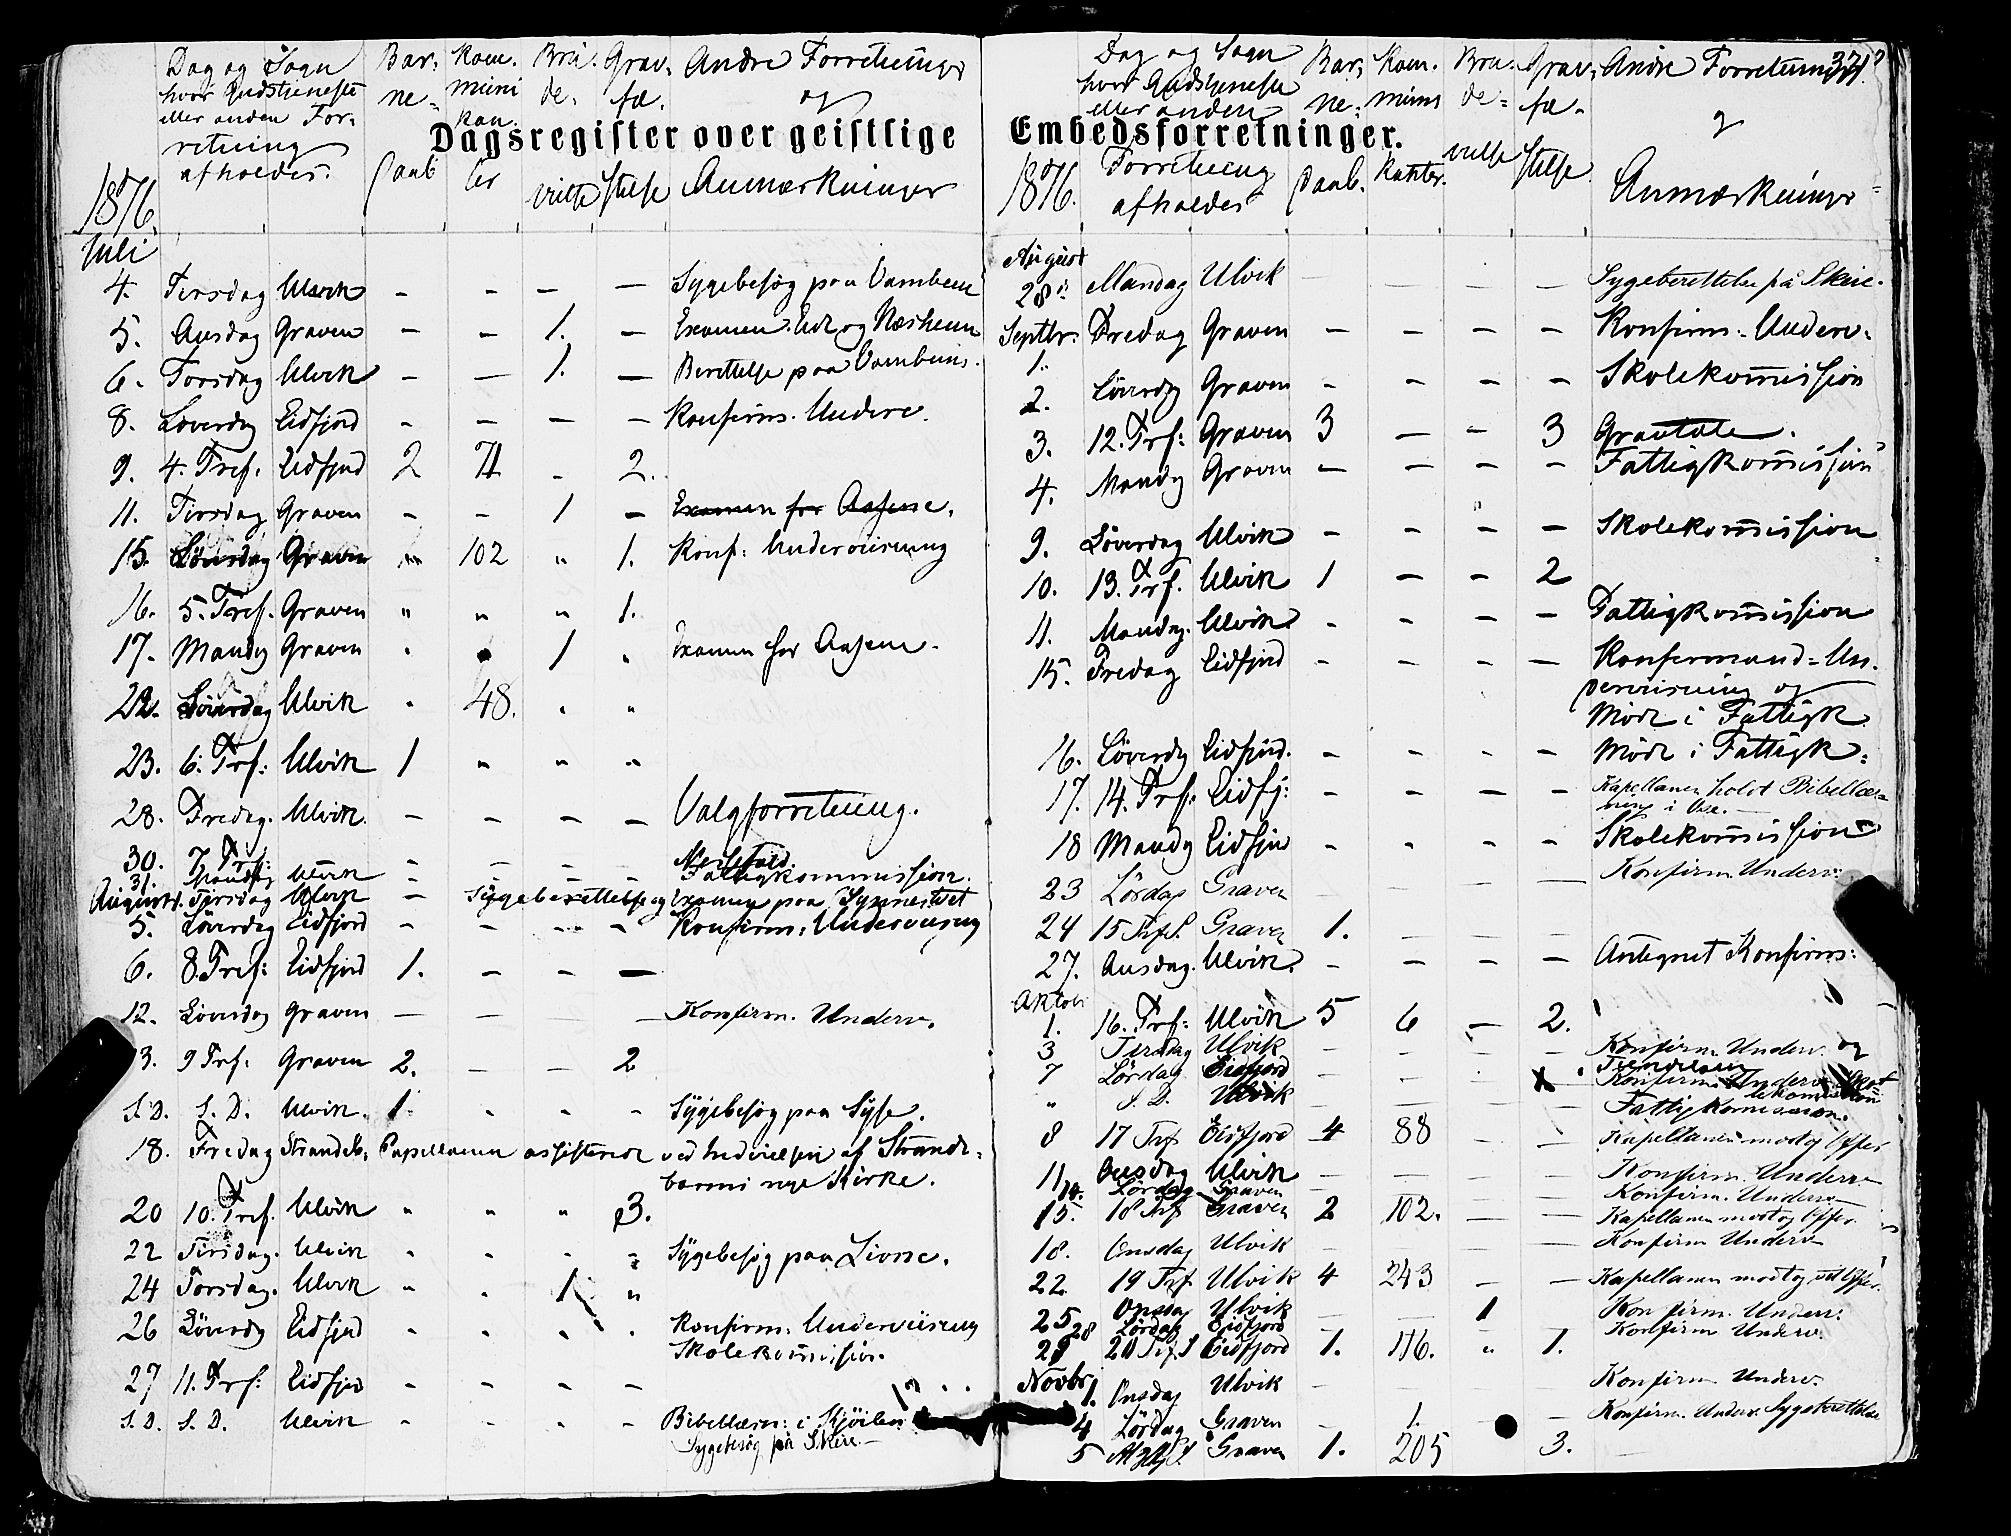 Dag og Sogn hvor Gudstjeneste eller anden Forretning afholdes.
Barne-Daab
Kommunikanter
Brudevielse
Gravfæstelse
Andre Forretninger og Anmærkninger
Dagsregister over geistlige
1876.
Juli
4. Tirsdag Ulvik - - - - Sygebesøg paa Vambeim
5. Onsdag Graven - - 1. - Examen. Eide og Næsheim
6. Torsdag Ulvik - - 1. - Berettelse paa Vambeim.
8. Løverdag Eidfjord - - - - Konfirm. Underv.
9. 4. Tref. Eidfjord 2 71 - 2.
11. Tirsdag Graven - - 1 - Examen for Aasene.
15. Løverdag Graven " 102 " 1. Konf: Underviisning
16. 5. Tref. Graven " " " 1.
17. Mandag Graven " 1 " Examen for Aasene.
22. Løverdag Ulvik " 48. " "
23. 6. Trf: Ulvik 1 " " "
28. Fredag. Ulvik. - - - - Valgforretning.
30. 7. Trf: - - - - Messefald.
31. Mandag Ulvik Fattigkommission.
August 1. Tirsdag Ulvik - Sygeberettelse og Examen paa Synnestvet
5. Løverdag Eidfjord - - - - Konfirm: Underviisning
6. 8 Tref: Eidfjord 1. - - -
12. Løverdag Graven - - - - Konfirm. Underv.
13. 9 Trf: Graven 2. - - 2
S. D. S. D. Ulvik. 1. " " " Sygebesøg paa Syse.
18. Fredag Strandeb. Capellanen assisterede ved Indvielsen af Strande-
barms nye Kirke.
20 10. Tref. Ulvik " " " 3.
22 Tirsdag. Ulvik " " " " Sygebesøg paa Lione.
24 Torsdag. Ulvik " " 1 "
26 Løverdg Eidfjord " " " " Konfirm. Underviisning
Skolekommission.
27 11. Trf: Eidfjord - - - -
S. D. S. D. Ulvik - - - - Bibellæsn: i
Sygebesøg på Skeie.
371
Dag og Sogn hvor Gudstjeneste eller anden Forretning afholdes
Barne-Daab.
Kommunikanter.
Brudevielse
Gravfæstelse
Andre Forretninger og Anmærkninger
Embedsforretninger.
1876.
August
28de Mandag Ulvik - - - - Sygeberettelse på Skeie.
Septbr: 1. Fredag Graven - - - - Konfirm. Underv.
2. Løverdg Graven - - - - Skolekommission
3. 12. Trf: Graven 3 - - 3 Gravtale.
4. Mandg Graven - - - - Fattigkommission
9. Løverdag Ulvik - - - - Skolekommission
10. 13. Trf. Ulvik 1 - - 2
11. Mandag. Ulvik - - - - Fattigkommission
15. Fredag Eidfjord - - - - Konfirmand-Un-
derviisning og
Møde i Fattigk
16. Løverdg Eidfjord. - - - - Møde i Fattigk.
17. 14. Trf. Eidfj: - - - - Kapellanen holdt Bibellæs-
ning i
18 Mandg Eidfjord - - - - Skolekommission
23 Lørdag Graven - - - - Konfirm. Underv.
24 15 Trf. S. Graven 1. - - -
27. Onsdag. Ulvik. - - - - Antegnet Konfirm:
Oktob:
1. 16. Trf: Ulvik 5 6 - 2.
3 Tirsdag Ulvik - - - - Konfirm. Underv. og
7 Lørdag Eidfjord - - - Konfirm. Underv.
" S. D. Ulvik - - - - Fattigkommission.
8 17 Trf Eidfjord 4 88 - - Kapellanen modtog Offer
11 Onsdag Ulvik - - - - Konfirm. Underv.
14. Lørdag Graven - - Konfirm. Underv.
15. 18 Trf Graven 2 102. - - Kapellanen modtog Offer.
18. Onsdag Ulvik - - - - Konfirm Underv
22 19 Trf Ulvik 4 243 - - Kapellanen modtog Offer.
25 Onsdag Ulvik - - 1 Konfirm. Underv:
28 Lørdag Eidfjord Konfirm Underv.
29 20 Trf. S Eidfjord 1. 116. " 1.
Novbr
1. Onsdag Ulvik - - - - Konfirm Underv.
4 Lørdag Graven - 1. - Konfirm. Underv. Sygeberettelse
5 Graven 1. 205 3. -